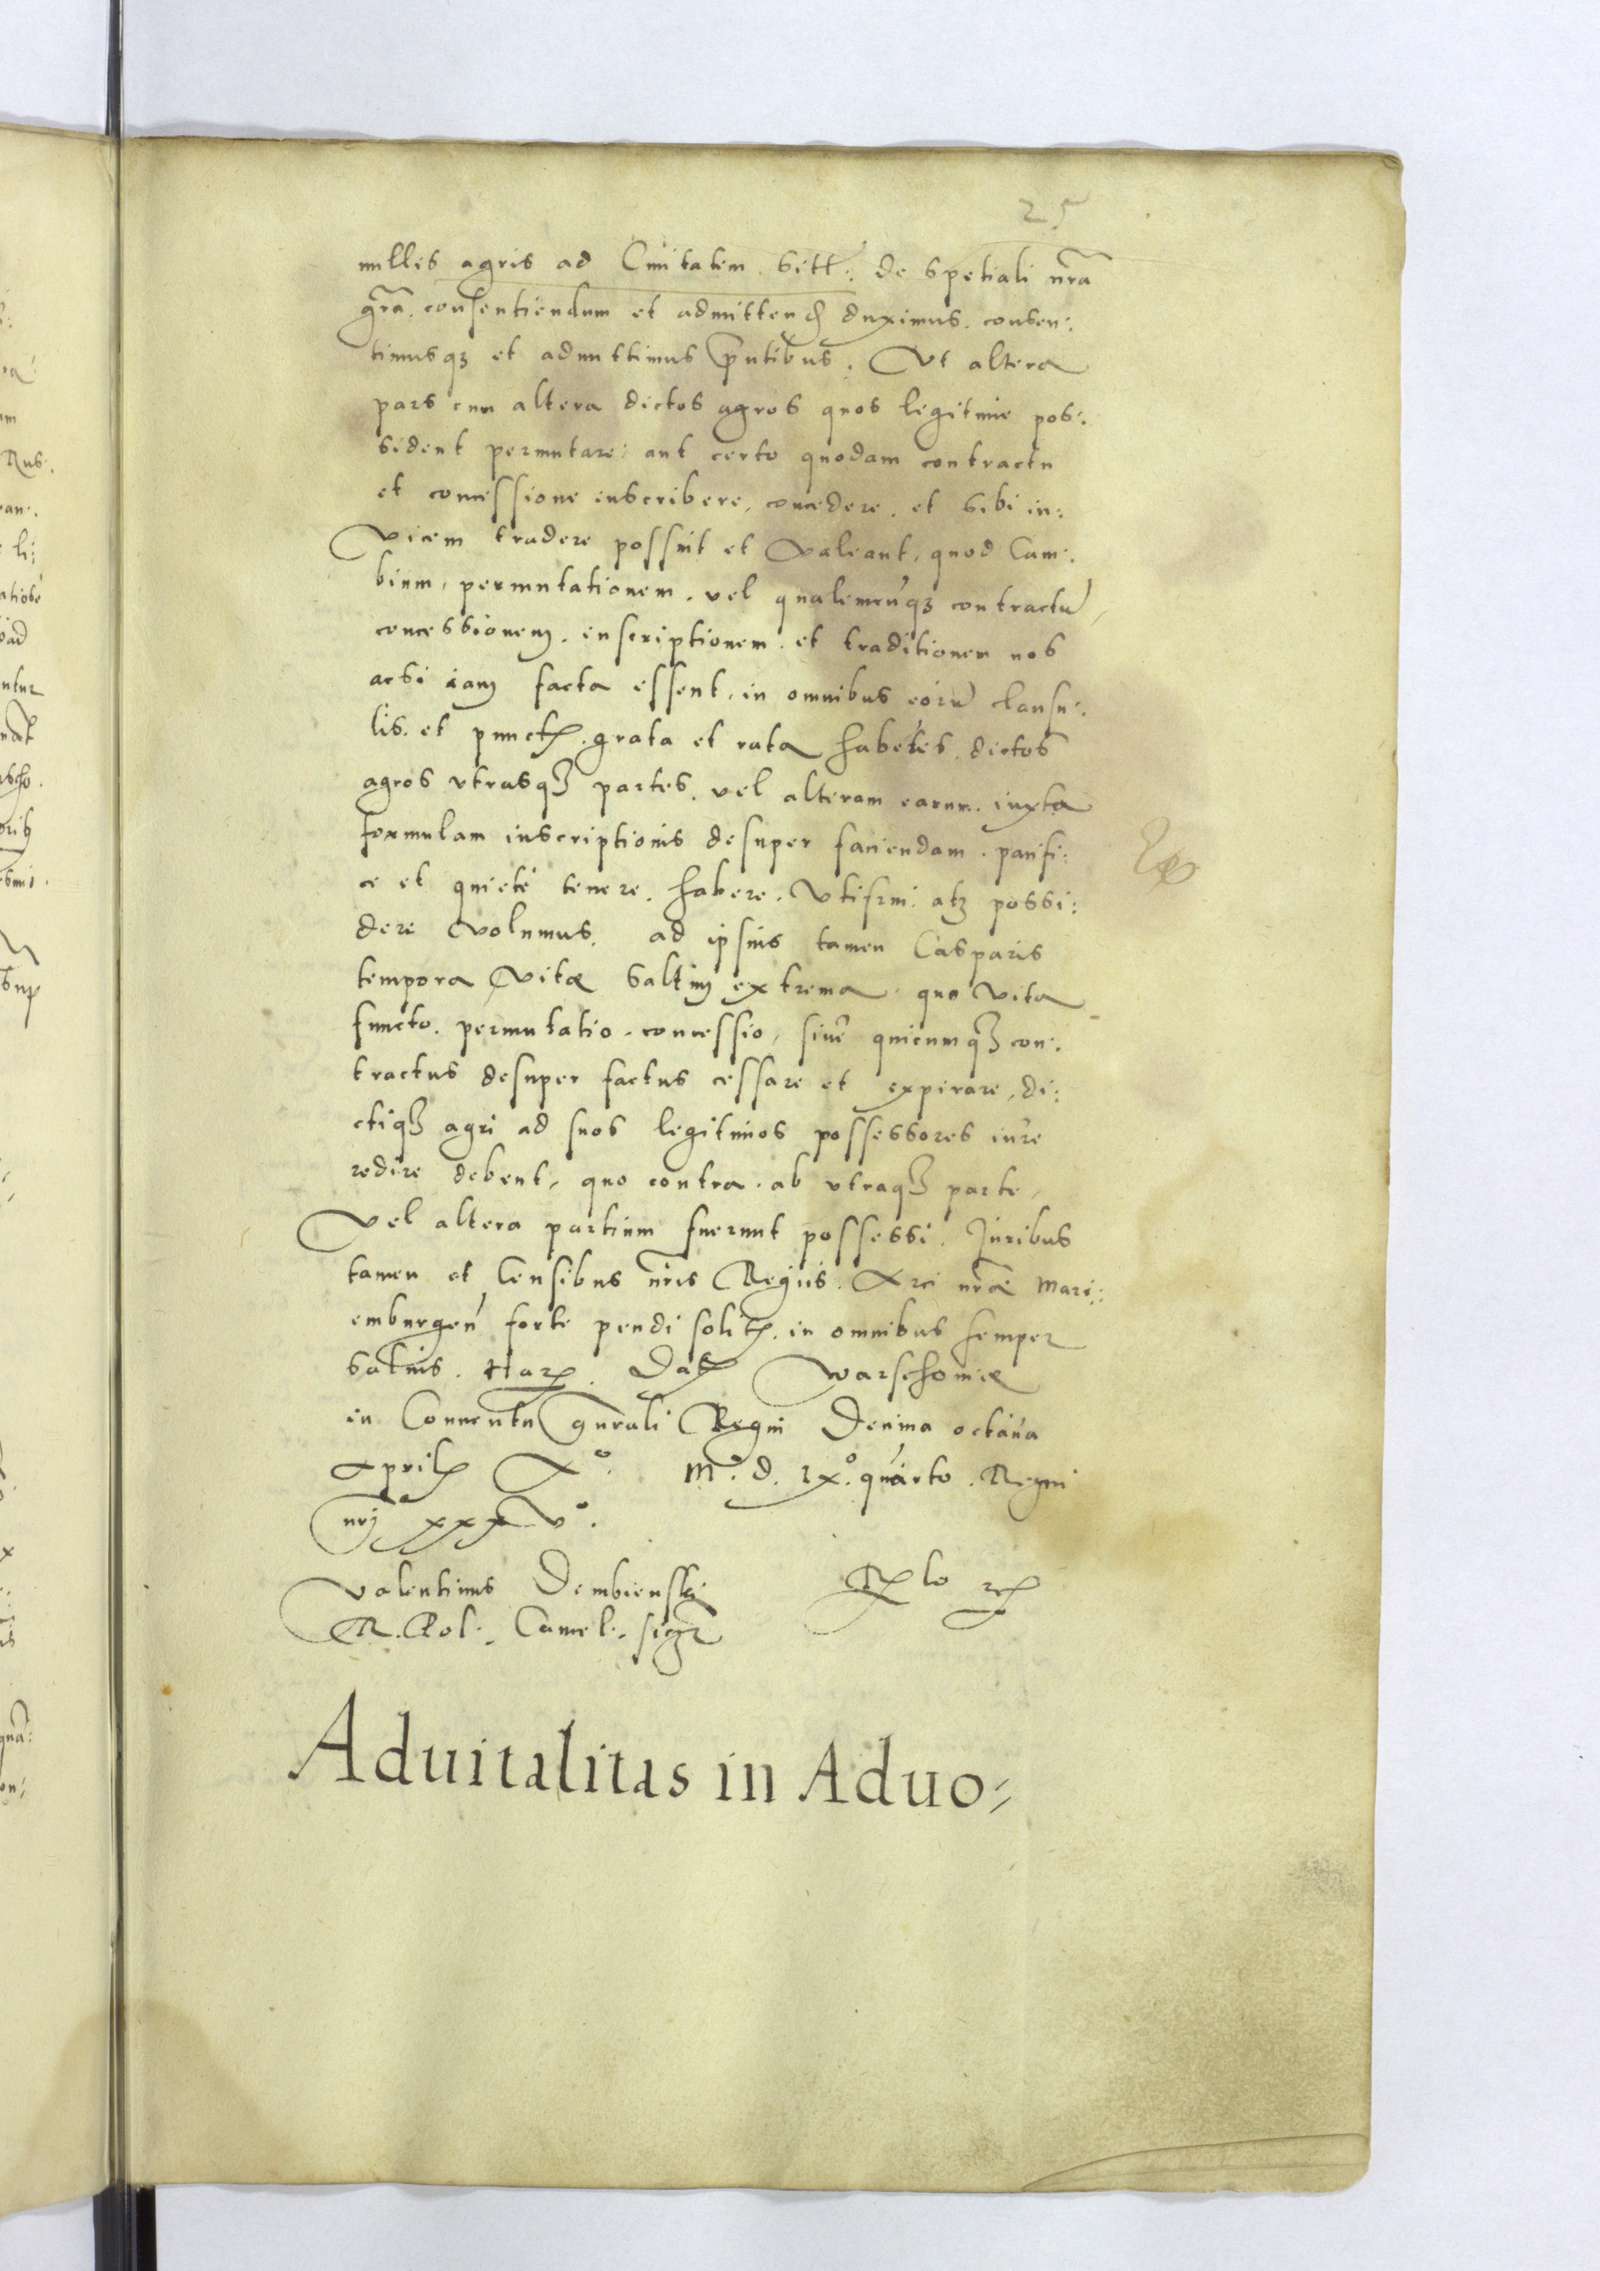 25
nulles agris ad Ciuitatem sitt: de spetiali nr̃a
gr̃a. consentiendum et admittend duximus. consen:
timusqꝫ et admittimus p̃ntibus. Vt altera
pars cum altera dictos agros quos legitime pos:
sident permutare: aut certo quodam contractu
et concessione inscribere, concedere. et sibi in:
vicem tradere possint et valeant, quod Cam:
bium, permutationem. vel qualemcũqꝫ contractũ,
concessionem. inscriptionem. et traditionem nos
acsi iam facta essent, in omnibus eorũ clausu:
lis. et punctꝭ. grata et rata habẽtes. dictos
agros vtrasqꝫ partes. vel alteram earum. iuxta
formulam inscriptionis desuper faciendam. pacifi:
ce et quiete tenere. habere. Vtifrui. atqꝫ possi:
dere volumus. ad ipsius tamen Casparis
tempora vitæ saltim extrema. quo vita
functo. permutatio. concessio, siue quicumqꝫ con:
tractus desuper factus cessare et expirare, di:
ctiqꝫ agri ad suos legitimos possessores iure
redire debent, quo contra. ab vtraqꝫ parte,
vel altera partium fuerunt possessi. Juribus
tamen et Censibus nr̃is Regiis. Arci nr̃æ Mari:
emburgeñ forte pendi solitꝭ. in omnibus semper
saluis. Harꝭ. Datꝭ Warschouiæ
in Conuentu gñrali Regni Decima octaua
Aprilꝭ Aº. Mº. d. lxº. quarto. Regni
nrj̃ xxxvº.
Valentinus Dembienskj
R. Pol. Cancel. siḡt
Rꝭlo rꝭ
Aduitalitas in Aduo⸗